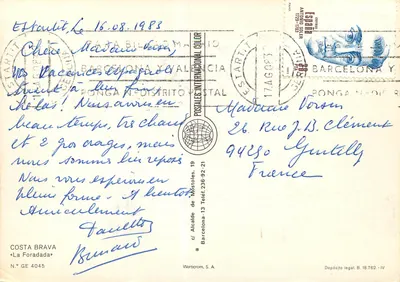 Estartit, le 16.08.1983
Chère Madame Vorson,
Nos Vacances espagnoles
tirent à leur fin
hélas! Nous avons eu
beau temps, très chaud
et 2 gros orages, mais
nous sommes bien reposés
Nous vous espérons en
pleine forme. A bientôt
Amicalement
Paulette
Bernard
COSTA BRAVA
«La Foradada»
N.° GE 4045
POSTALES INTERNACIONAL COLOR
c/ Alcalde de Móstoles, 19
Barcelona-13 Telef. 236-92-21
Warscron, S. A.
ESTARTIT
17 AGO 83
BARCELONA Y
PONGA DISTRITO POSTAL
españa
CORREOS
Madame Vorson
26 Rue J.B. Clément
94250 Gentilly
France
Depósito legal B. 16.762-IV